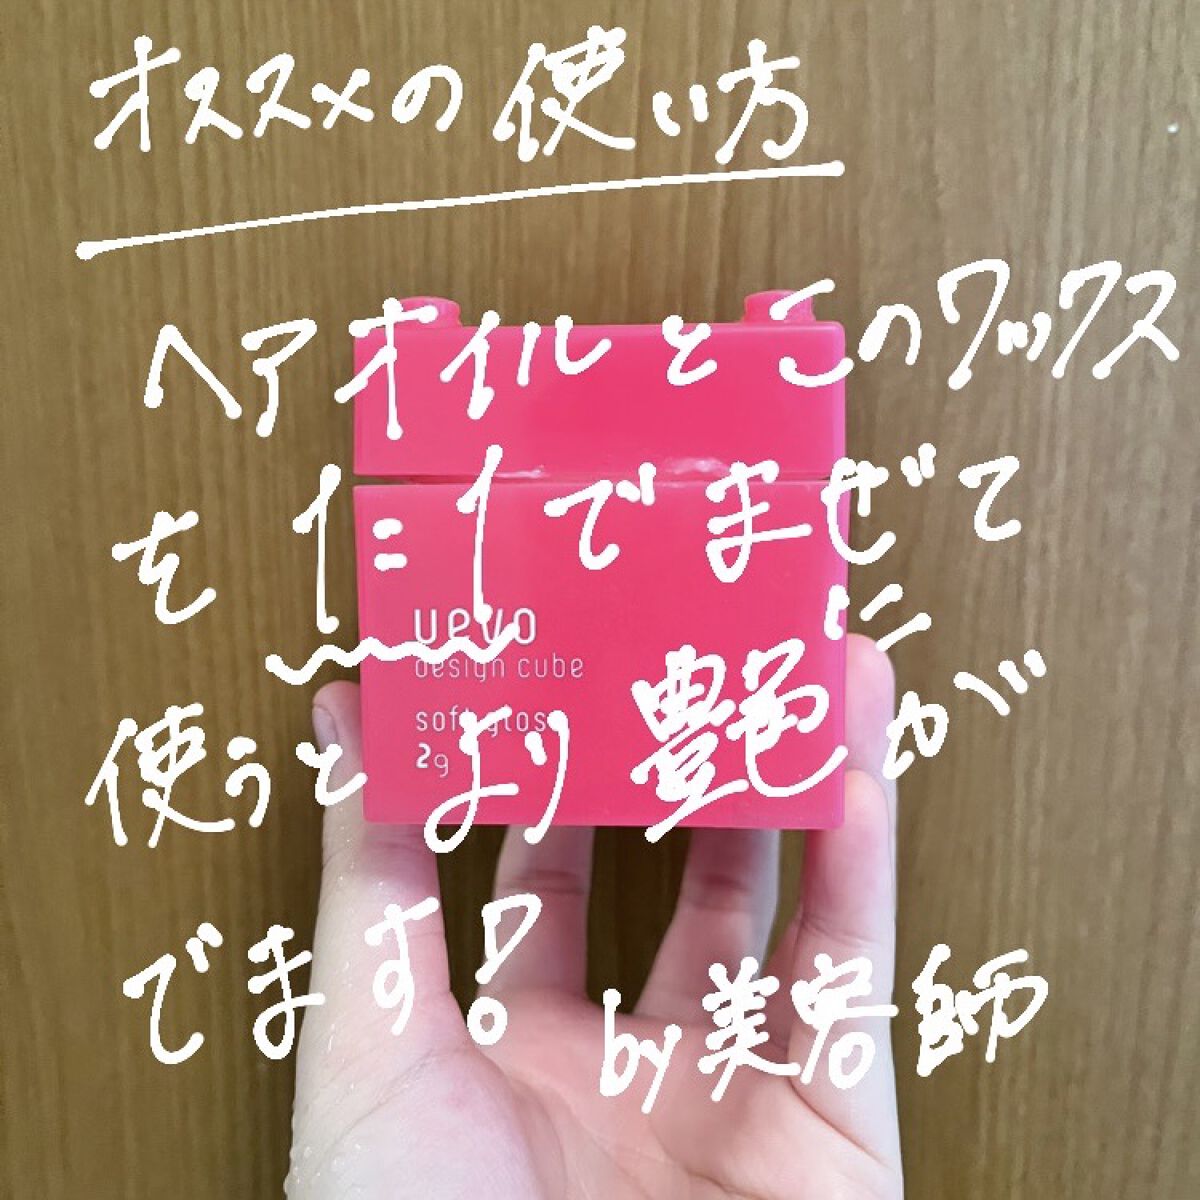 オススメの使い方
ヘアオイルとこのワックス
を1=1でまぜて
使うとより艶が
でます!
by美容師
uevo
design cube
soft gloss
2g